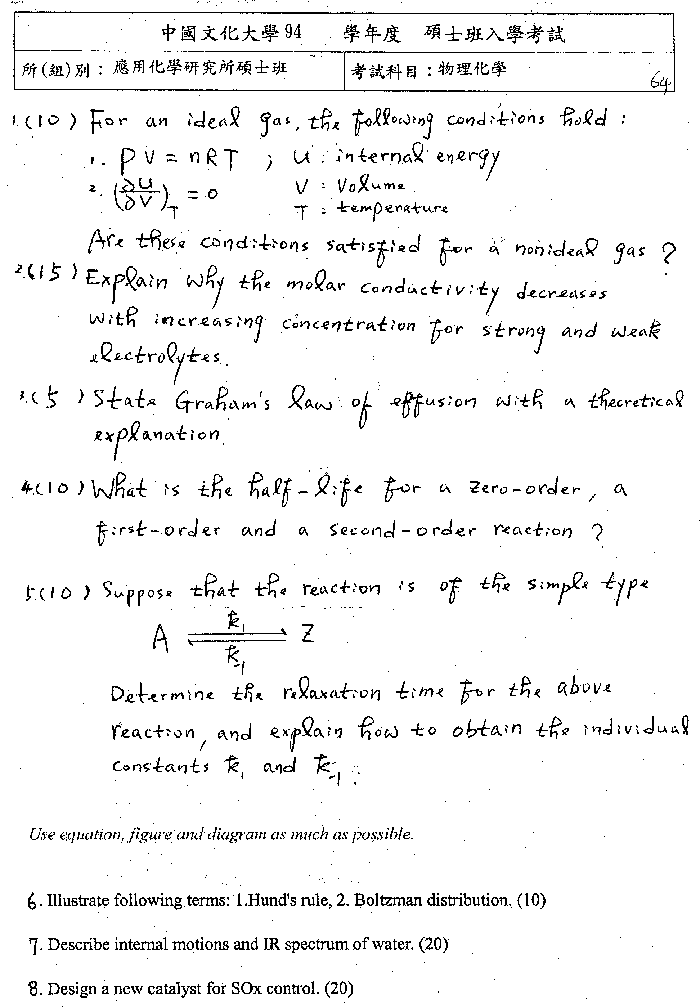 中國文化大學94 學年度 碩士班入學考試
所(組)別：應用化學研究所碩士班 考試科目：物理化學
64
1.(10) For an ideal gas, the following conditions hold :
1. PV = nRT ; U : internal energy
2. (∂U/∂V)_T = 0 V : Volume
T : temperature
Are these conditions satisfied for a nonideal gas ?
2.(15) Explain why the molar conductivity decreases
with increasing concentration for strong and weak
electrolytes.
3.(5) State Graham's law of effusion with a theoretical
explanation
4.(10) What is the half-life for a zero-order, a
first-order and a second-order reaction ?
5.(10) Suppose that the reaction is of the simple type
k₁
A ⇌ Z
k₋₁
Determine the relaxation time for the above
reaction, and explain how to obtain the individual
constants k₁ and k₋₁.
Use equation, figure and diagram as much as possible.
6. Illustrate following terms: 1.Hund's rule, 2. Boltzman distribution. (10)
7. Describe internal motions and IR spectrum of water. (20)
8. Design a new catalyst for SOx control. (20)